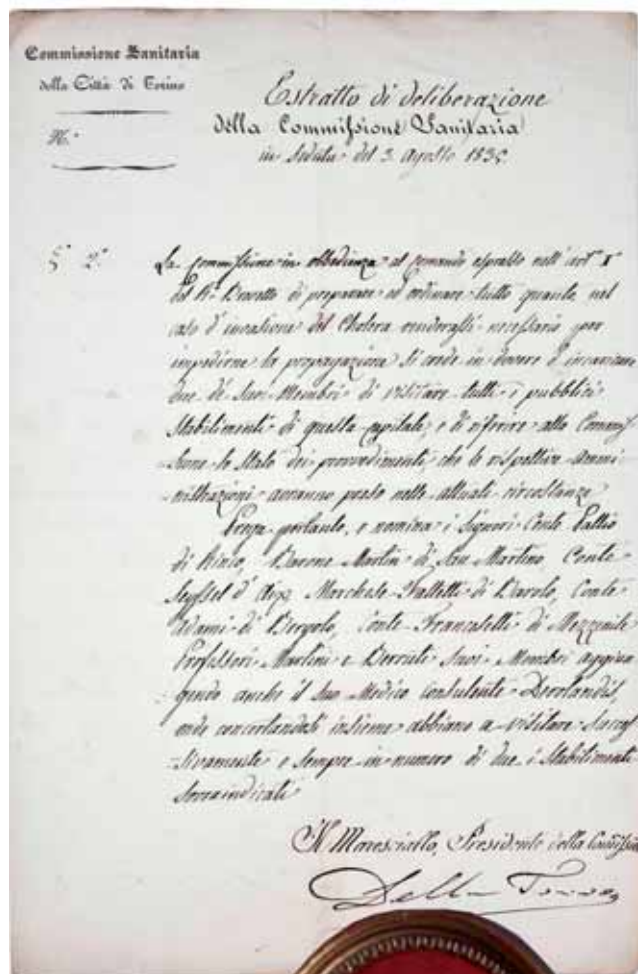 Commissione Sanitaria
della Città di Torino
N.°
Estratto di deliberazione
della Commissione Sanitaria
in seduta del 3. Agosto 1835
§. 2.° La Commissione in obbedienza al comando espresso nell'art. 1
del R.° Brevetto di preparare ed ordinare tutto quanto, nel
caso d'invasione del Cholera renderassi necessario per
impedirne la propagazione si crede in dovere d'incaricare
due de' suoi Membri di visitare tutti i pubblici
Stabilimenti di questa capitale, e di riferire alla Commis-
sione lo stato dei provvedimenti che le rispettive Ammi-
nistrazioni avranno preso nelle attuali circostanze
Prega pertanto, e nomina i Signori Conte
di Rinco, Barone Martin di San Martino, Conte
Seyssel d'Aix, Marchese Falletti di Barolo, Conte
Adami di Bergolo, Conte Francesetti di Mezzenile
Professori Martini e Berruti suoi Membri aggiun-
gendo anche il suo Medico Consulente Derolandis
onde concertandosi insieme abbiano a visitare succes-
sivamente e sempre in numero di due i Stabilimenti
sovraindicati
Il Maresciallo, Presidente della Commissione
Della Torre